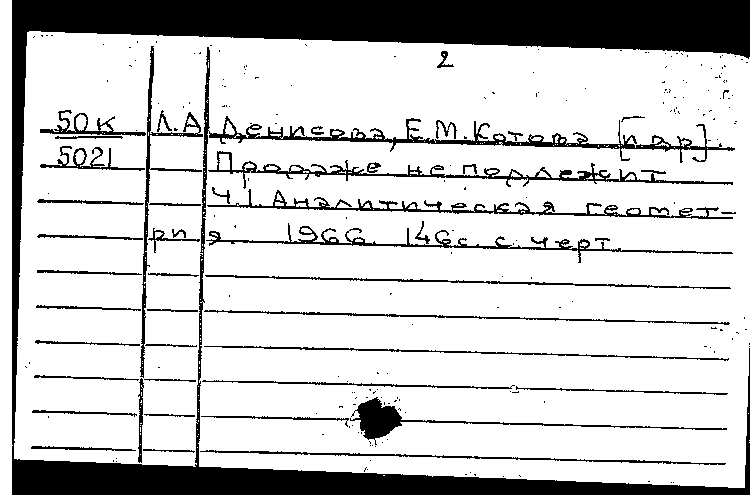 2
50к Л.А. Денисова, Е.М. Котова [и др].
5021 Продаже не подлежит
Ч.1. Аналитическая геомет-
рия. 1966. 146с. с черт.